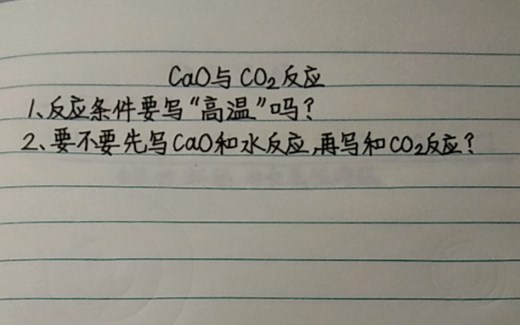 CaO与CO₂反应
1、反应条件要写“高温”吗?
2、要不要先写CaO和水反应,再写和CO₂反应?